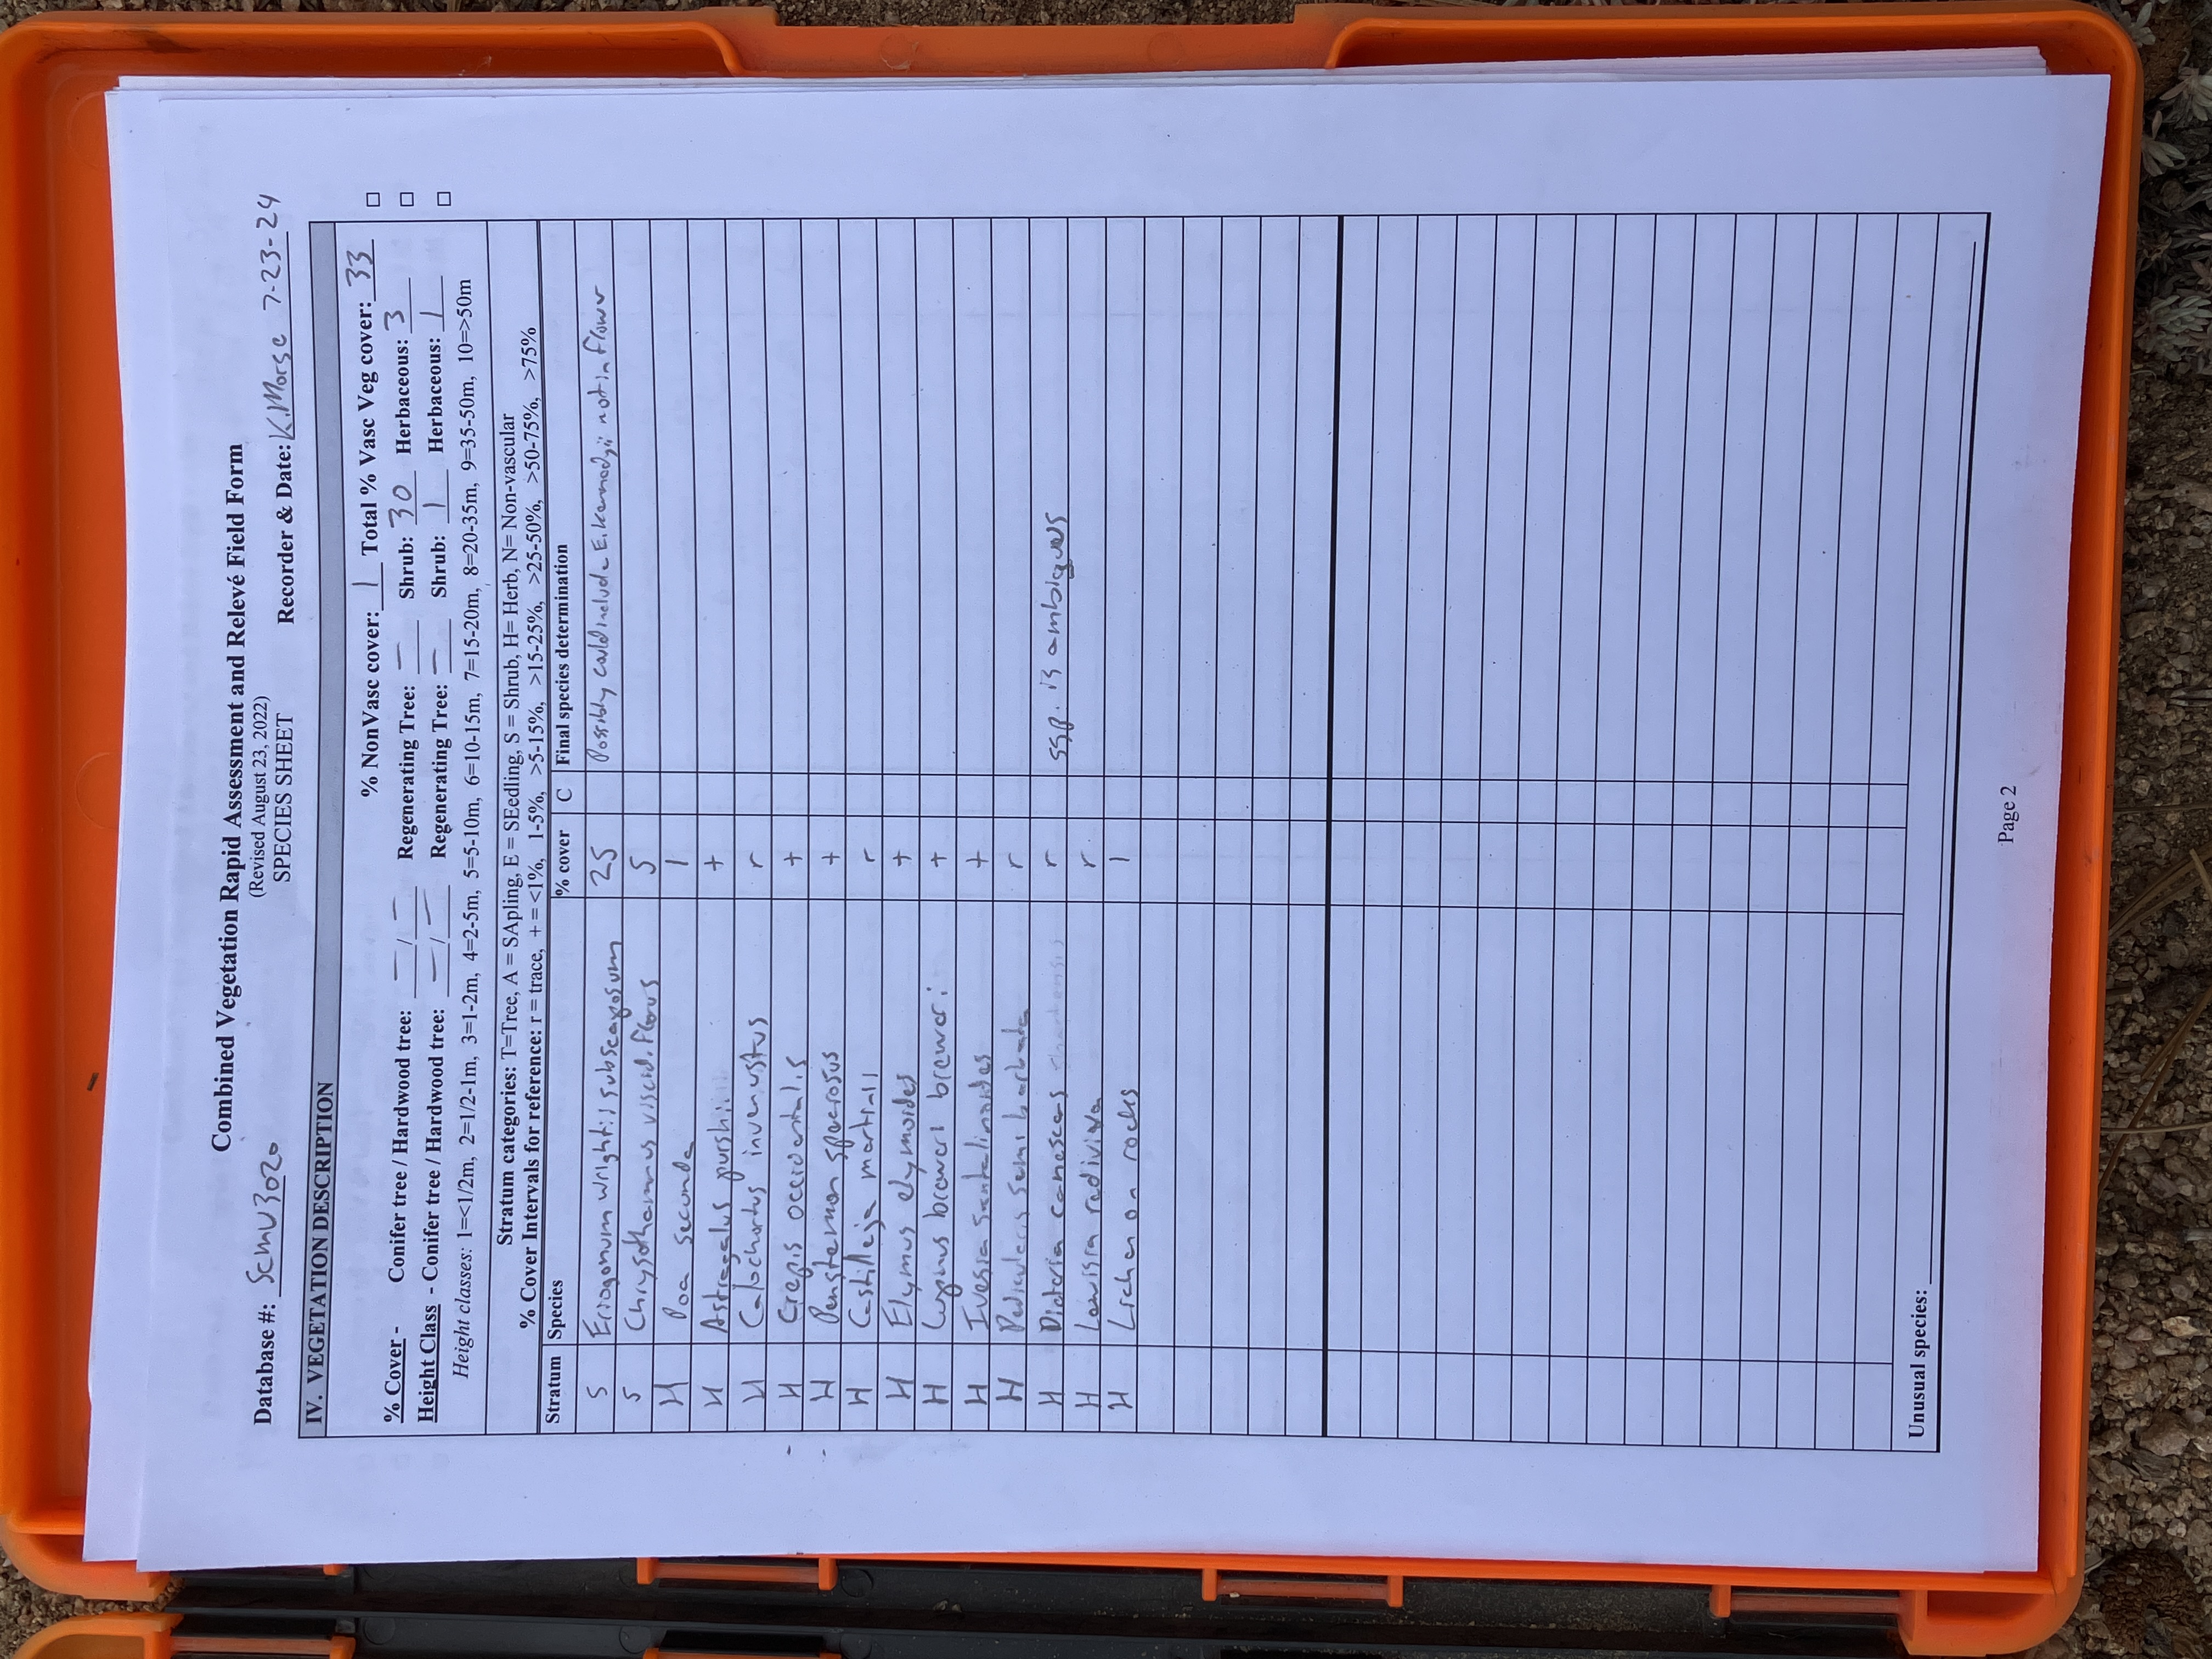 Combined Vegetation Rapid Assessment and Relevé Field Form
(Revised August 23, 2022)
SPECIES SHEET
Database #: Scmu3020 Recorder & Date: K.Morse 7-23-24
IV. VEGETATION DESCRIPTION
% NonVasc cover: 1 Total % Vasc Veg cover: 33 □
% Cover - Conifer tree / Hardwood tree: — / — Regenerating Tree: — Shrub: 30 Herbaceous: 3 □
Height Class - Conifer tree / Hardwood tree: — / — Regenerating Tree: — Shrub: 1 Herbaceous: 1 □
Height classes: 1=<1/2m, 2=1/2-1m, 3=1-2m, 4=2-5m, 5=5-10m, 6=10-15m, 7=15-20m, 8=20-35m, 9=35-50m, 10=>50m
Stratum categories: T=Tree, A = SApling, E = SEedling, S = Shrub, H= Herb, N= Non-vascular
% Cover Intervals for reference: r = trace, + = <1%, 1-5%, >5-15%, >15-25%, >25-50%, >50-75%, >75%
Stratum Species % cover C Final species determination
S Eriogonum wrightii subscaposum 25 Possibly could include E. kennedyii not in flower
S Chrysothamnus viscidiflorus 5
H Poa secunda 1
H Astragalus purshii +
H Calochortus invenustus r
H Crepis occidentalis +
H Penstemon speciosus +
H Castilleja martinii r
H Elymus elymoides +
H Lupinus breweri breweri +
H Ivesia santalinoides +
H Pedicularis semibarbata r
H Dieteria canescens r ssp. is ambiguous
H Lewisia rediviva r
H Lichen on rocks 1
Unusual species:
Page 2